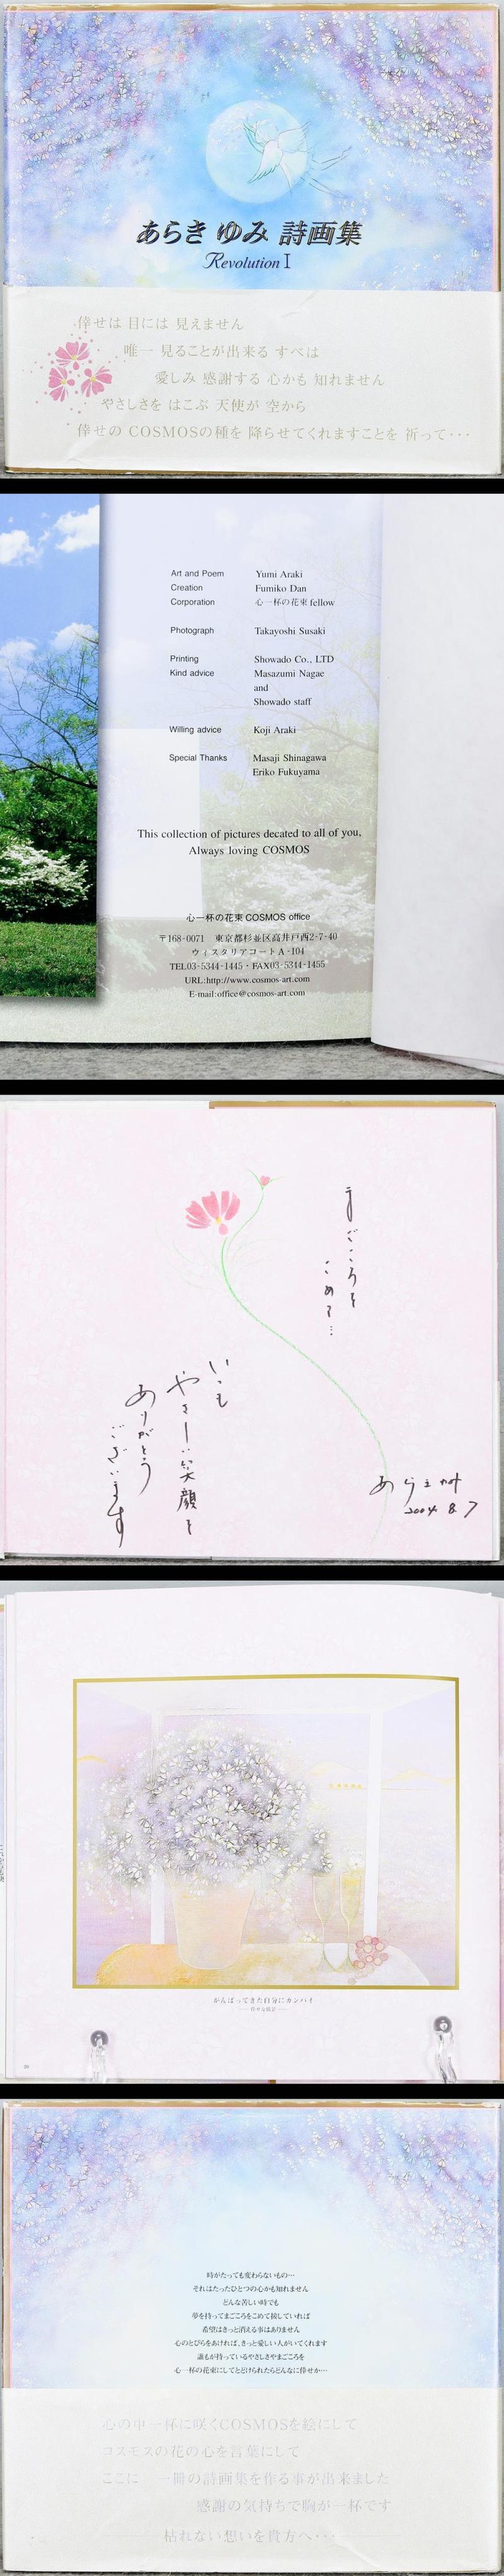 あらき ゆみ 詩画集
Revolution I
倖せは 目には 見えません
唯一 見ることが出来る すべは
愛しみ 感謝する 心かも 知れません
やさしさを はこぶ 天使が 空から
倖せの COSMOSの種を 降らせてくれますことを 祈って・・・
Art and Poem Yumi Araki
Creation Fumiko Dan
Corporation 心一杯の花束 fellow
Photograph Takayoshi Susaki
Printing Showado Co., LTD
Kind advice Masazumi Nagae
and
Showado staff
Willing advice Koji Araki
Special Thanks Masaji Shinagawa
Eriko Fukuyama
This collection of pictures decated to all of you,
Always loving COSMOS
心一杯の花束 COSMOS office
〒168-0071 東京都杉並区高井戸西2-7-40
ウィスタリアコートA-104
TEL03-5344-1445・FAX03-5344-1455
URL:http://www.cosmos-art.com
E-mail:office@cosmos-art.com
まごころを
こめて…
いつも
やさしい笑顔を
ありがとう
ございます
あらき
2004 8 7
がんばってきた自分にカンパイ
時がたっても変わらないもの…
それはたったひとつの心かも知れません
どんな苦しい時でも
夢を持ってまごころをこめて接していれば
希望はきっと消える事はありません
心のとびらをあければ、きっと愛しい人がいてくれます
誰もが持っているやさしさやまごころを
心一杯の花束にしてとどけられたらどんなに倖せか…
心の中一杯に咲くCOSMOSを絵にして
コスモスの花の心を言葉にして
ここに 一冊の詩画集を作る事が出来ました
感謝の気持ちで胸が一杯です
枯れない想いを貴方へ・・・